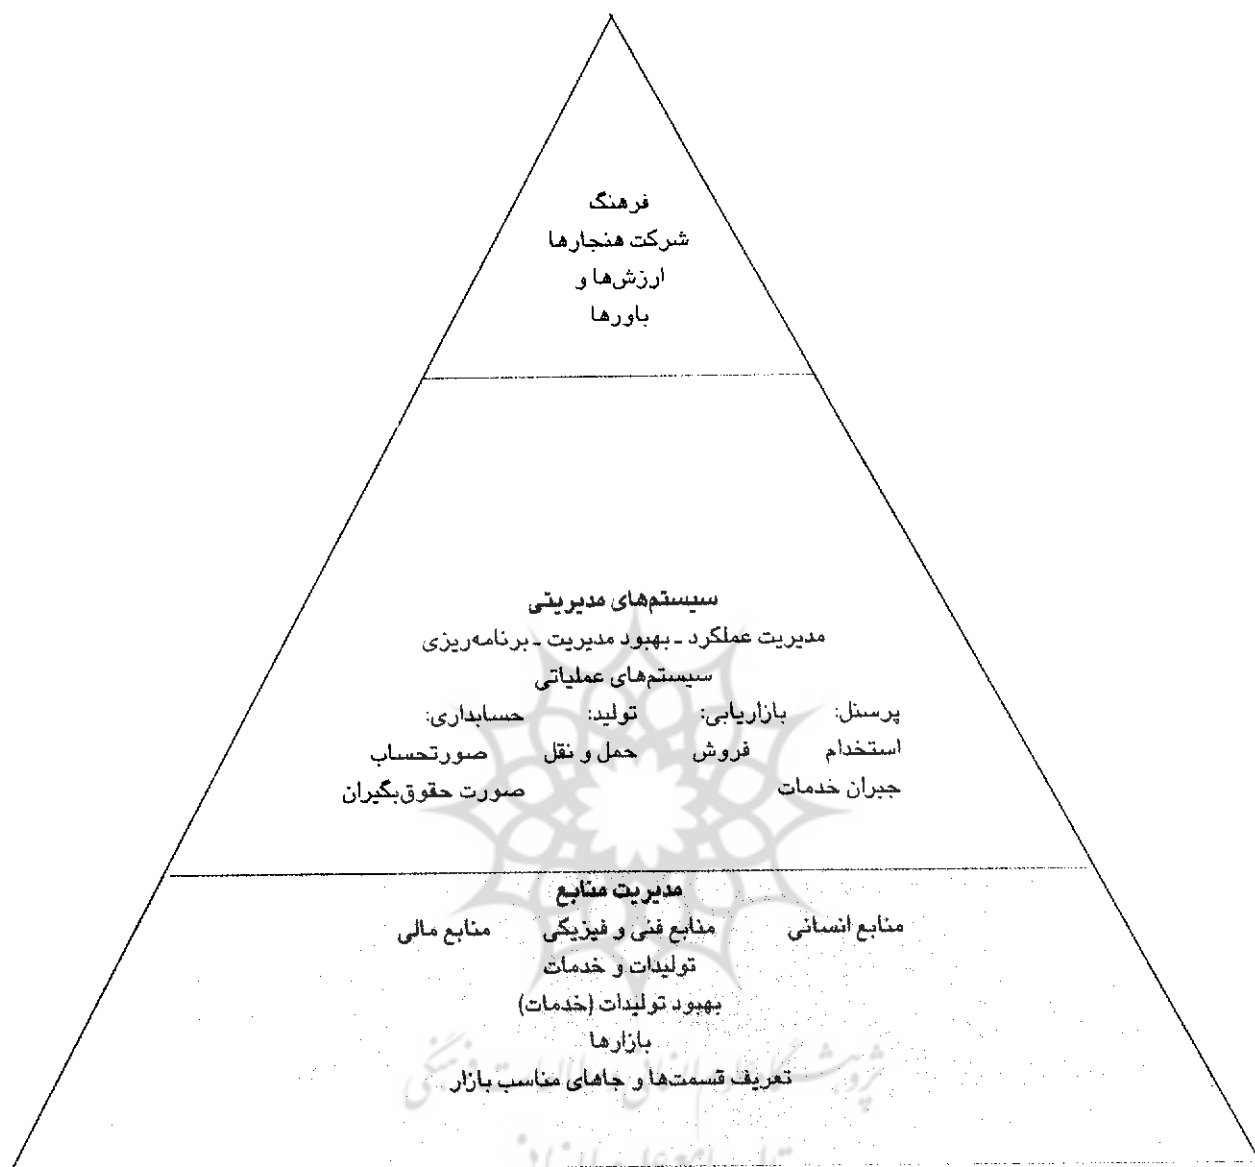 فرهنگ
شرکت هنجارها
ارزش‌ها و
باورها
سیستم‌های مدیریتی
مدیریت عملکرد ـ بهبود مدیریت ـ برنامه‌ریزی
سیستم‌های عملیاتی
پرسنل: بازاریابی: تولید: حسابداری:
استخدام فروش حمل و نقل صورتحساب
جبران خدمات صورت حقوق‌بگیران
مدیریت منابع
منابع انسانی منابع فنی و فیزیکی منابع مالی
تولیدات و خدمات
بهبود تولیدات (خدمات)
بازارها
تعریف قسمت‌ها و جاهای مناسب بازار
پژوهشگاه علوم انسانی و مطالعات فرهنگی